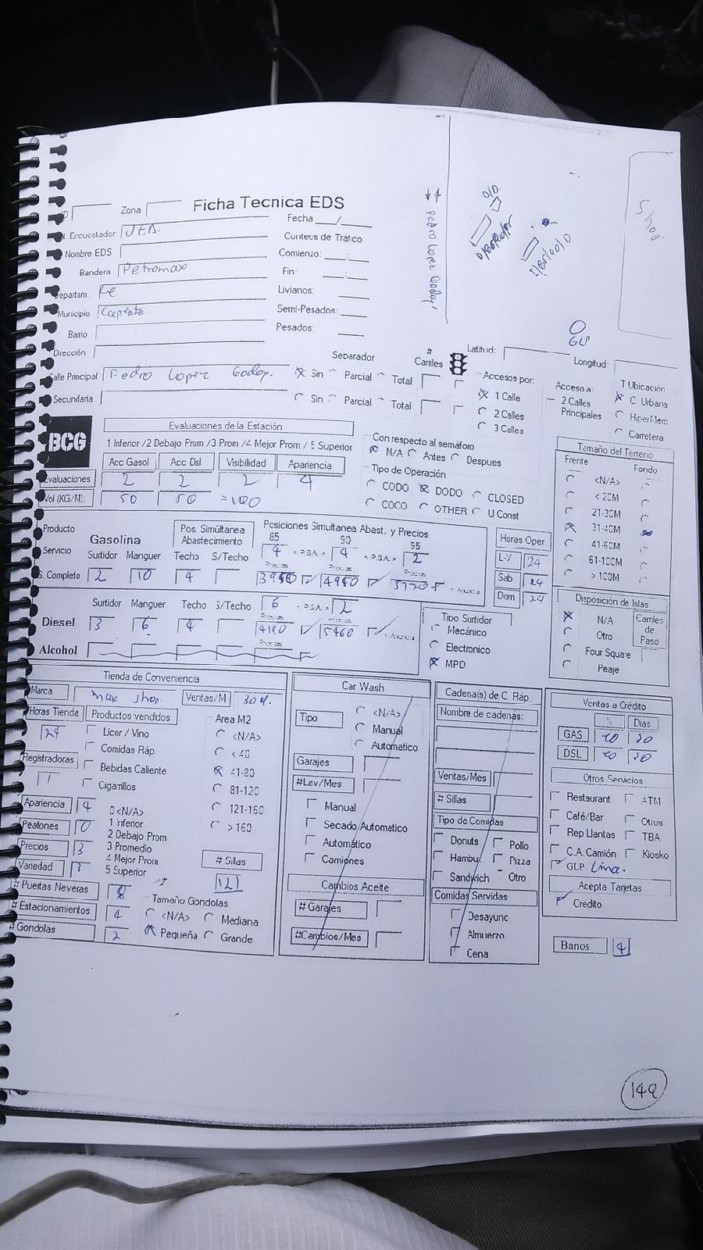 Ficha Tecnica EDS
Zona
Fecha
Encuestador JEA.
Conteos de Tráfico
Nombre EDS
Comienzo: :
Bandera Petromax
Fin: :
Departam.
Livianos:
Municipio Capiata
Semi-Pesados:
Barrio
Pesados:
Dirección
Pedro Lopez Godoy
Shop
GLP
Latitud:
Longitud:
Separador
# Carriles
Calle Principal Pedro Lopez Godoy. X Sin Parcial Total
Secundaria Sin Parcial Total
Accesos por:
X 1 Calle
2 Calles
3 Calles
Acceso a:
2 Calles
Principales
T Ubicación
X C Urbana
Carretera
BCG
Evaluaciones de la Estación
1 Inferior /2 Debajo Prom /3 Prom /4 Mejor Prom / 5 Superior
Acc Gasol Acc Dsl Visibilidad Apariencia
Evaluaciones 2 2 2 4
Vol (KG/M): 50 50 =100
Con respecto al semáforo
X N/A Antes Despues
Tipo de Operación
CODO X DODO CLOSED
COCO OTHER U Const
Tamaño del Terreno
Frente Fondo
<N/A>
< 20M
21-30M
X 31-40M
41-60M
61-100M
> 100M
Producto
Gasolina
Pos. Simúltanea Abastecimiento
Posiciones Simultanea Abast. y Precios
85 90 95
4 4 2
Servicio Surtidor Manguer Techo S/Techo
S. Completo 2 10 4
Horas Oper
L-V 24
Sab 24
Dom 24
Surtidor Manguer Techo S/Techo
6 2
Diesel 3 6 4
Alcohol
Tipo Surtidor
Mecánico
Electronico
X MPD
Disposición de Islas
X N/A
Otro
Four Square
Peaje
Carriles de Paso
Tienda de Conveniencia
Marca max shop. Ventas/M 30 M.
Horas Tienda 24
Productos vendidos
Licor / Vino
Comidas Ráp.
Bebidas Caliente
Cigarrillos
Area M2
<N/A>
< 40
X 41-80
81-120
121-160
> 160
Registradoras 1
Apariencia 4
Peatones 0
Precios 3
Variedad 3
0 <N/A>
1 Inferior
2 Debajo Prom
3 Promedio
4 Mejor Prom
5 Superior
# Sillas
12
# Puertas Neveras 8
# Estacionamientos 4
# Gondolas 2
Tamaño Gondolas
<N/A> Mediana
X Pequeña Grande
Car Wash
Tipo
<N/A>
Manual
Automatico
Garajes
#Lav/Mes
Manual
Secado Automatico
Automático
Camiones
Cambios Aceite
# Garajes
#Cambios/Mes
Cadena(s) de C. Ráp.
Nombre de cadenas:
Ventas/Mes
# Sillas
Tipo de Comidas
Donuts Pollo
Hambu. Pizza
Sandwich Otro
Comidas Servidas
Desayuno
Almuerzo
Cena
Ventas a Crédito
% Dias
GAS 20
DSL 20
Otros Servicios
Restaurant ATM
Café/Bar Otros
Rep Llantas TBA
C.A.Camión Kiosko
GLP Lima.
Acepta Tarjetas
Crédito
Banos 4
149